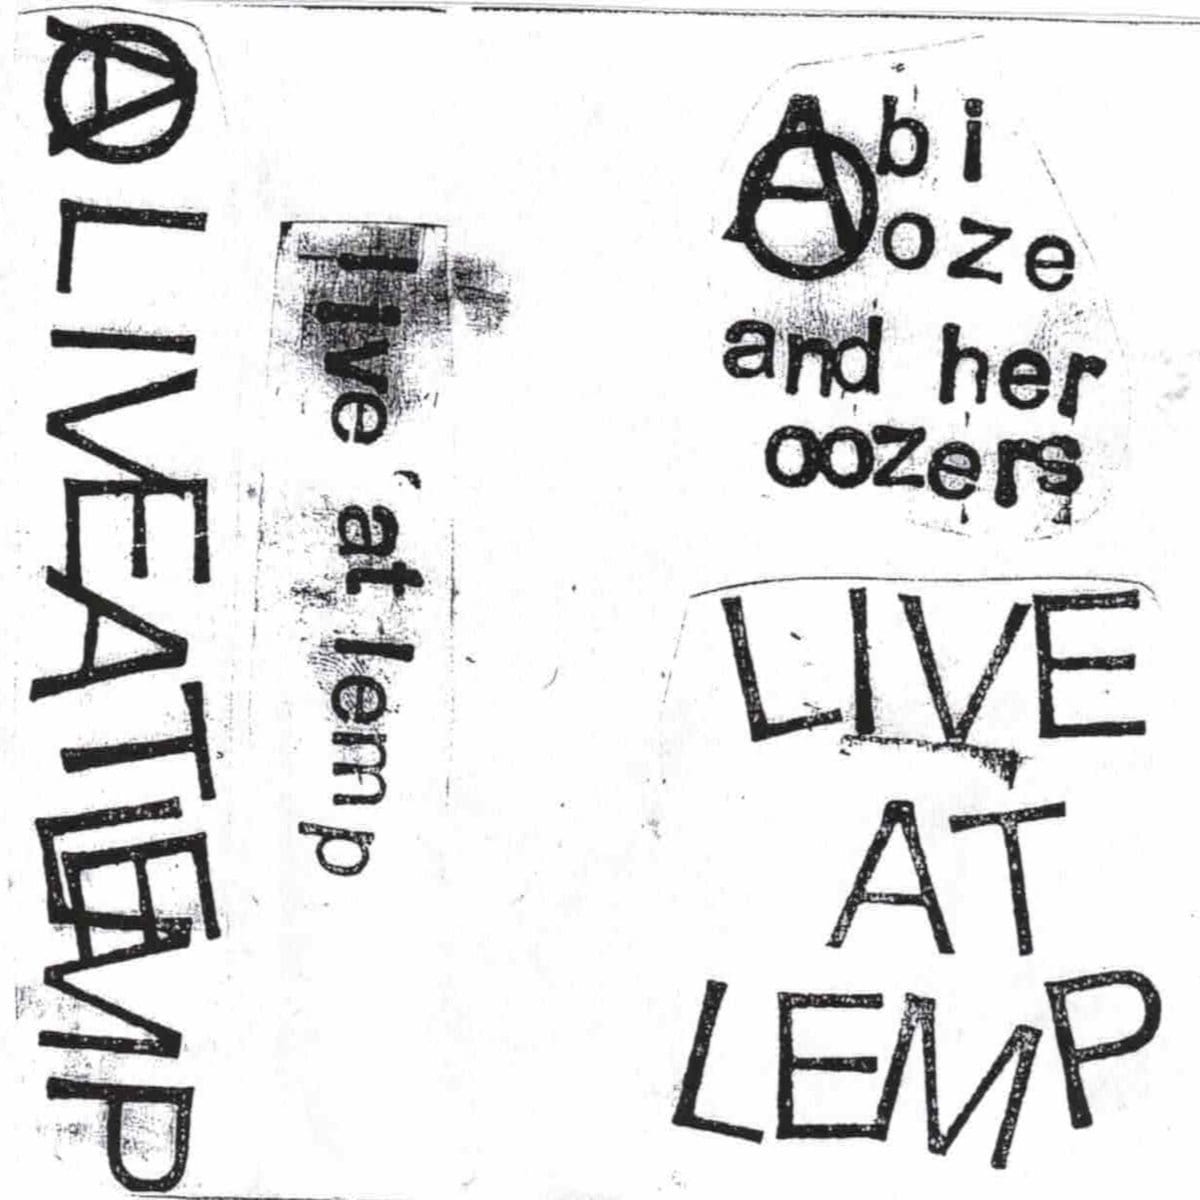 Ⓐ LIVE AT LEMP
live at lemp
Abi
ooze
and her
oozers
LIVE
AT
LEMP